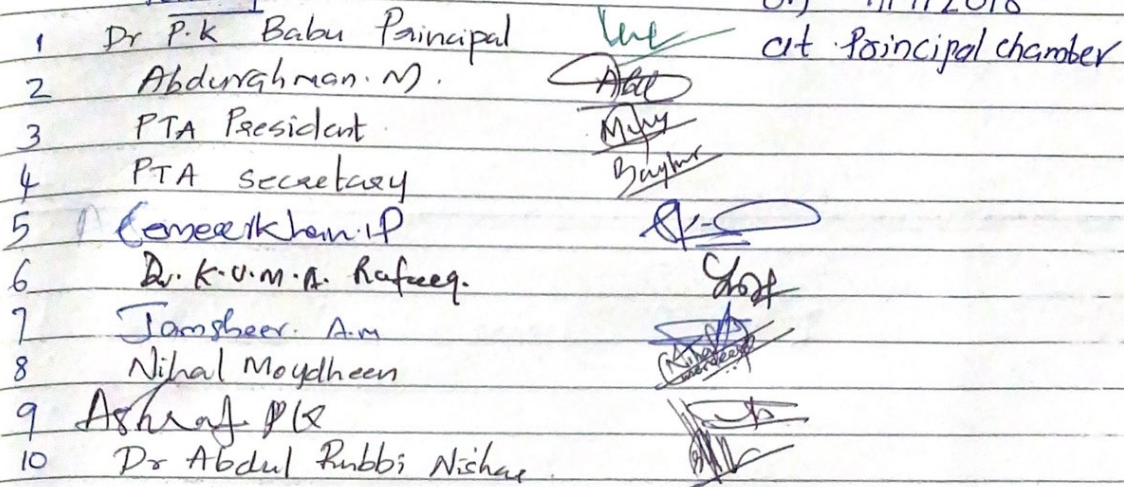 1 Dr P.K Babu Principal at Principal chamber
2 Abdurahman. M.
3 PTA President
4 PTA secretary
5 Sameerkhan.P
6 Dr. K.U.M.A. Rafeeq.
7 Jamsheer. A.M
8 Nihal Moydheen
9 Ashraf PK
10 Dr Abdul Rubbi